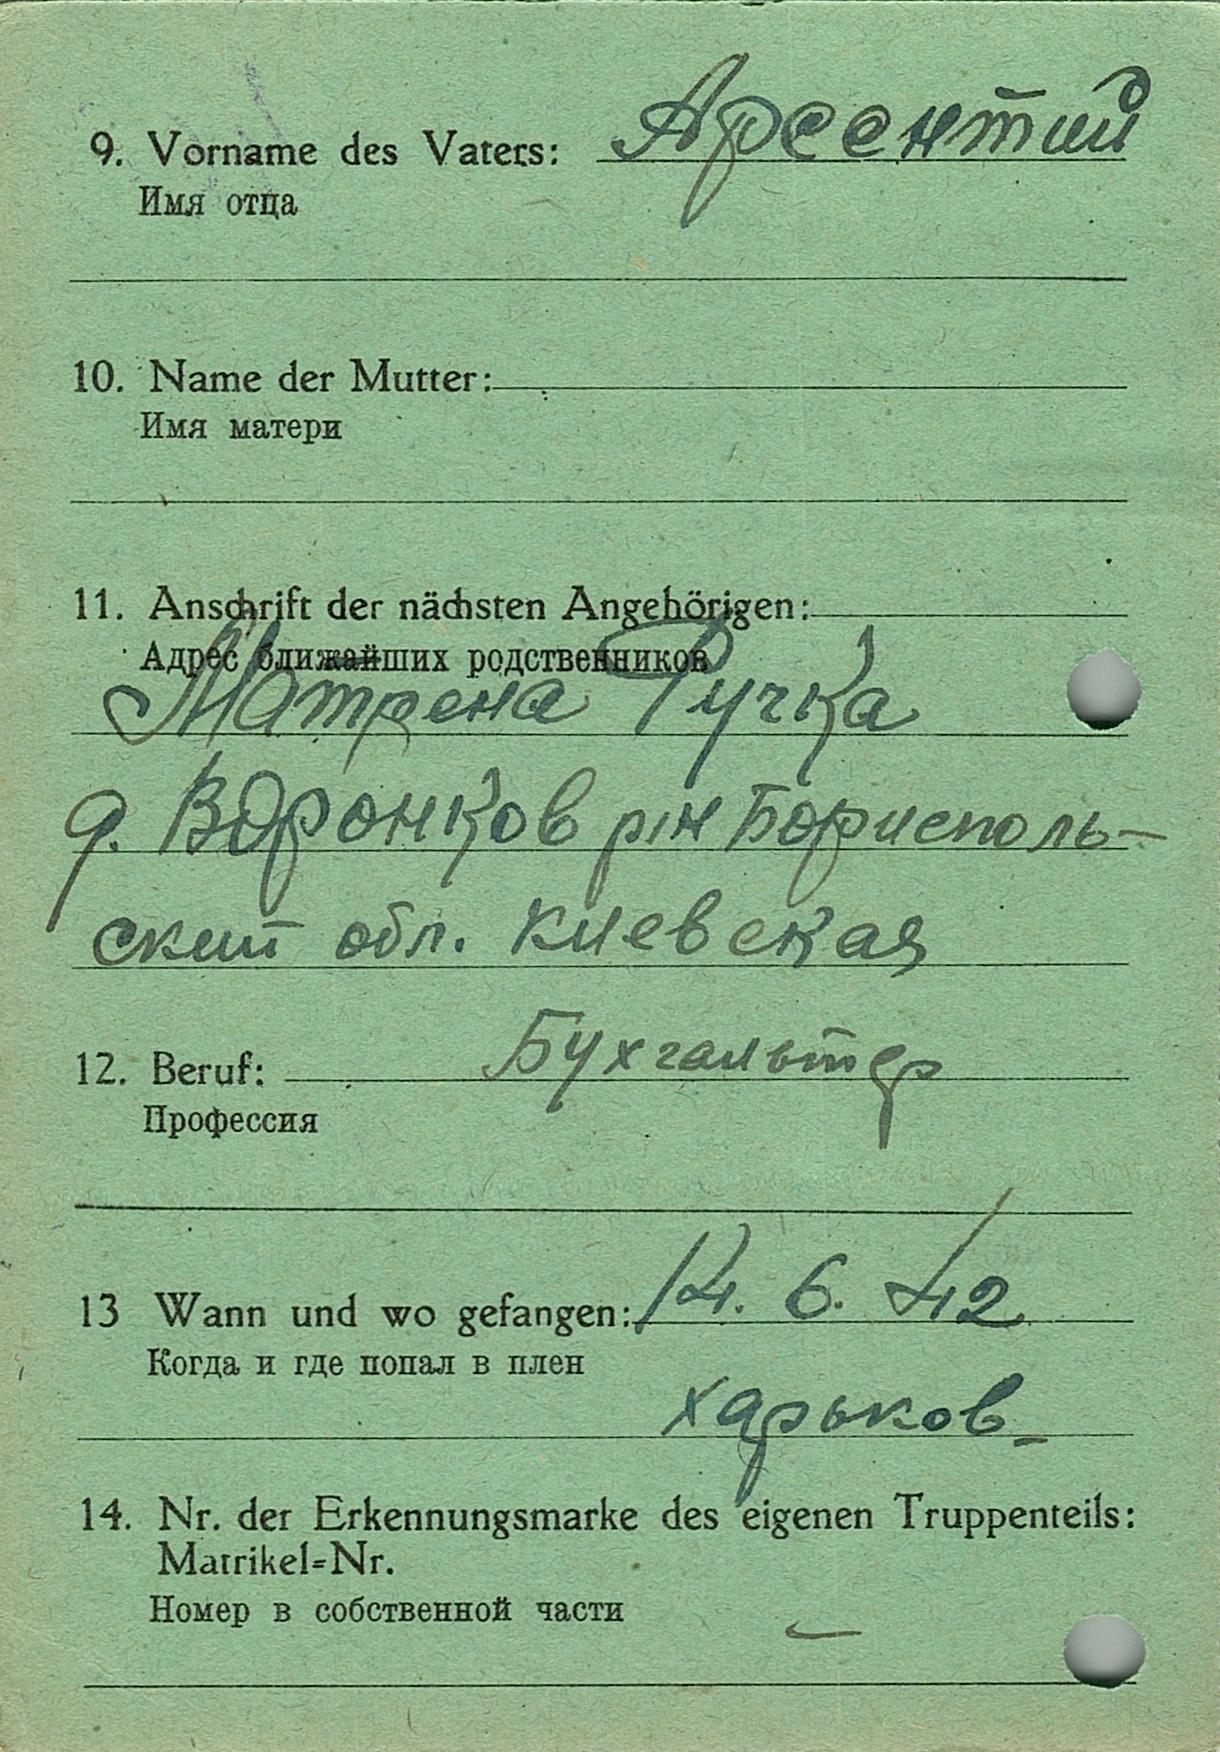 9. Vorname des Vaters: Арсентий
Имя отца
10. Name der Mutter:
Имя матери
11. Anschrift der nächsten Angehörigen:
Адрес ближайших родственников
Матрена Ручка
д. Воронков р-н Борисполь-
ский обл. Киевская
12. Beruf: Бухгальтер
Профессия
13 Wann und wo gefangen: 14. 6. 42
Когда и где попал в плен
Харьков
14. Nr. der Erkennungsmarke des eigenen Truppenteils:
Matrikel=Nr.
Номер в собственной части
—